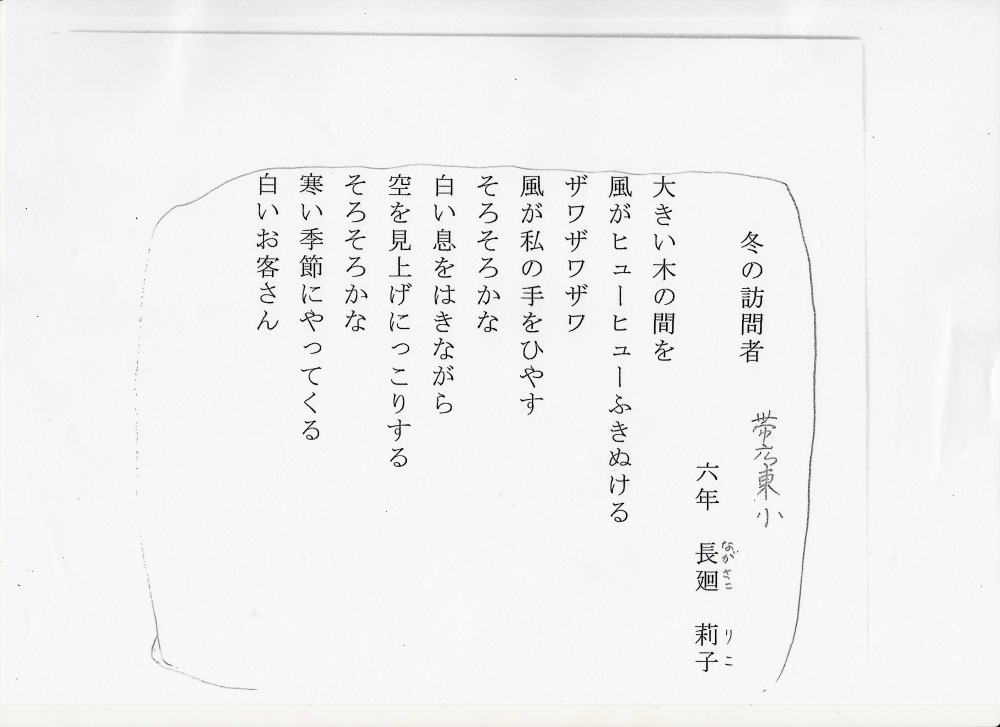 冬の訪問者
帯広東小
六年　長廻　莉子
ながさこ　りこ
大きい木の間を
風がヒューヒューふきぬける
ザワザワザワ
風が私の手をひやす
そろそろかな
白い息をはきながら
空を見上げにっこりする
そろそろかな
寒い季節にやってくる
白いお客さん